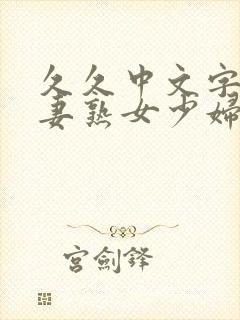 久久中文字
妻熟女少婦
宮劍鋒